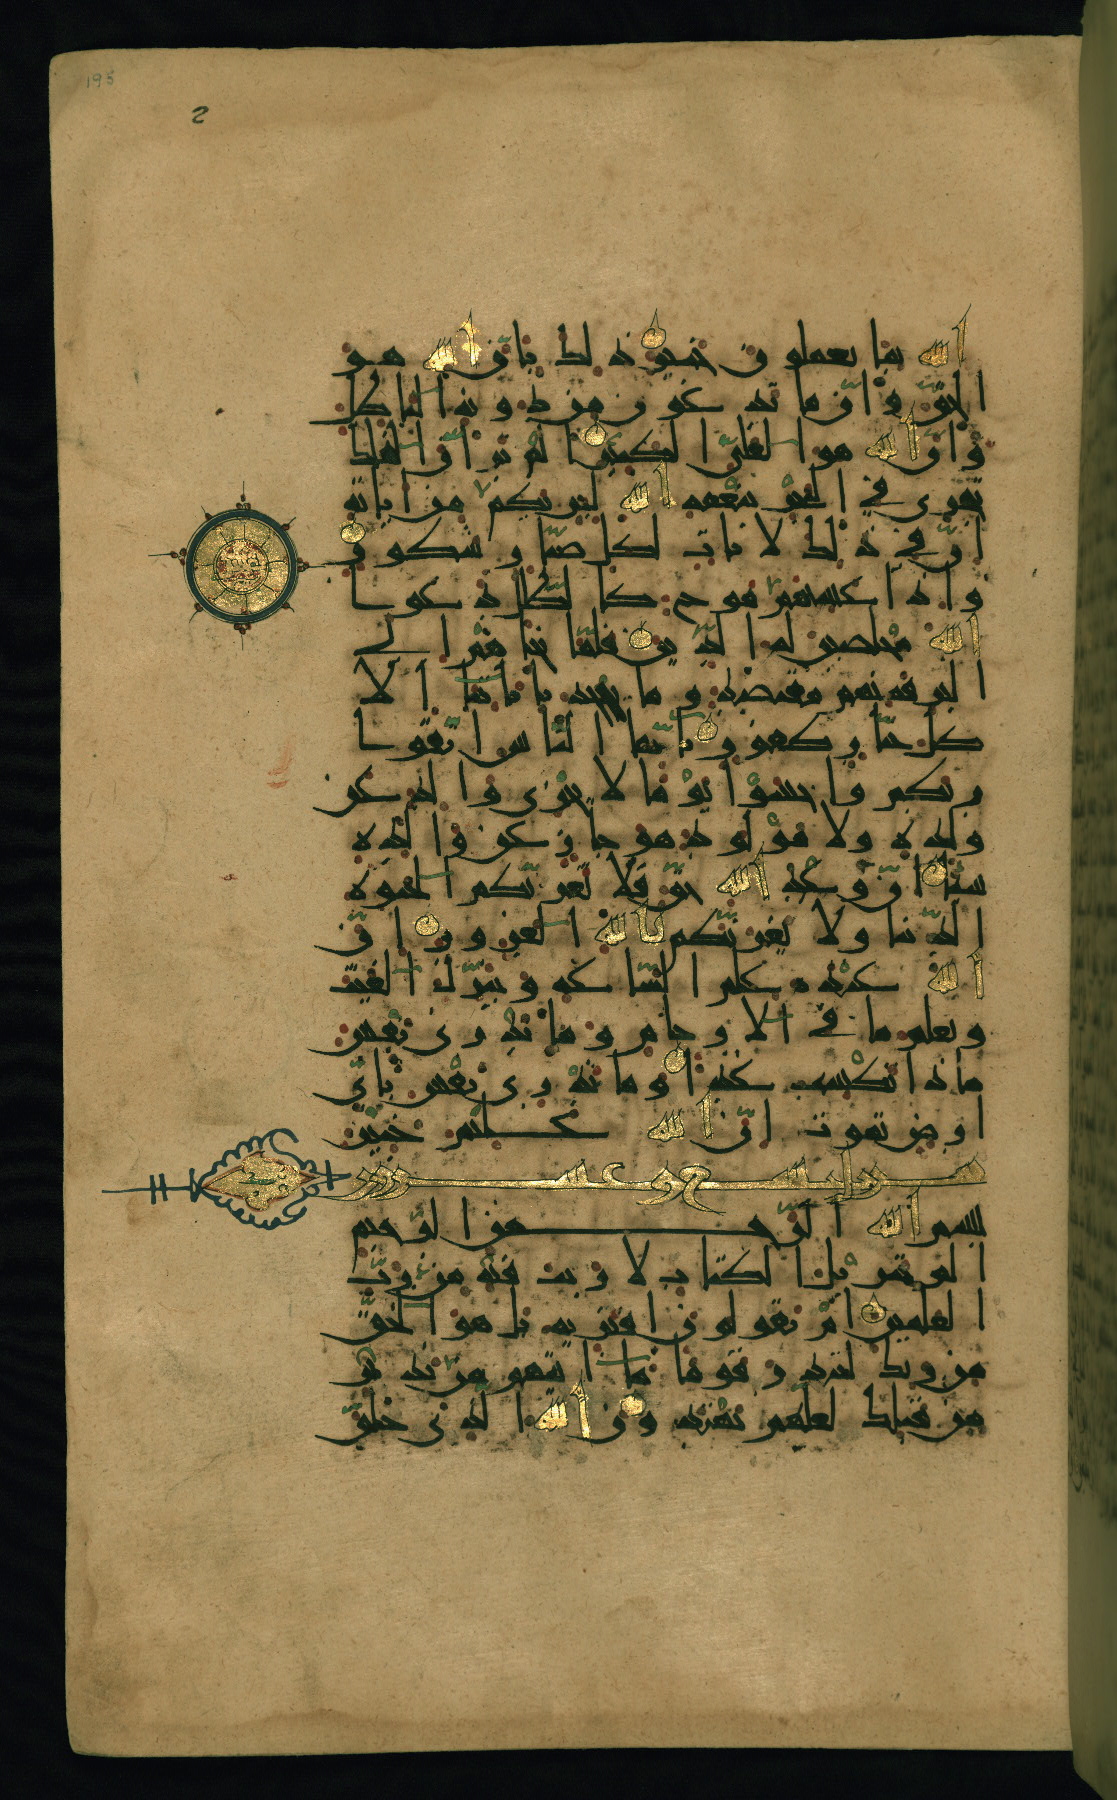 195
2
الله بما يعملون خبير ذلك بان الله هو
الحق وان ما تدعون من دونه البطل
وان الله هو العلي الكبير الم تر ان الفلك
تجري في البحر بنعمه الله ليريكم من اياته
ان في ذلك لايات لكل صبار شكور
واذا غشيهم موج كالظلل دعوا
الله مخلصين له الدين فلما نجاهم الى
البر فمنهم مقتصد وما يجحد باياتنا الا
كل ختار كفور يايها الناس اتقوا
ربكم واخشوا يوما لا يجزي والد عن
ولده ولا مولود هو جاز عن والده
شيا ان وعد الله حق فلا تغرنكم الحيوه
الدنيا ولا يغرنكم بالله الغرور ان
الله عنده علم الساعه وينزل الغيث
ويعلم ما في الارحام وما تدري نفس
ماذا تكسب غدا وما تدري نفس باي
ارض تموت ان الله عليم خبير
تسع وعشرون
بسم الله الرحمن الرحيم
الم تنزيل الكتاب لا ريب فيه من رب
العلمين ام يقولون افتريه بل هو الحق
من ربك لتنذر قوما ما اتيهم من نذير
من قبلك لعلهم يهتدون الله الذي خلق